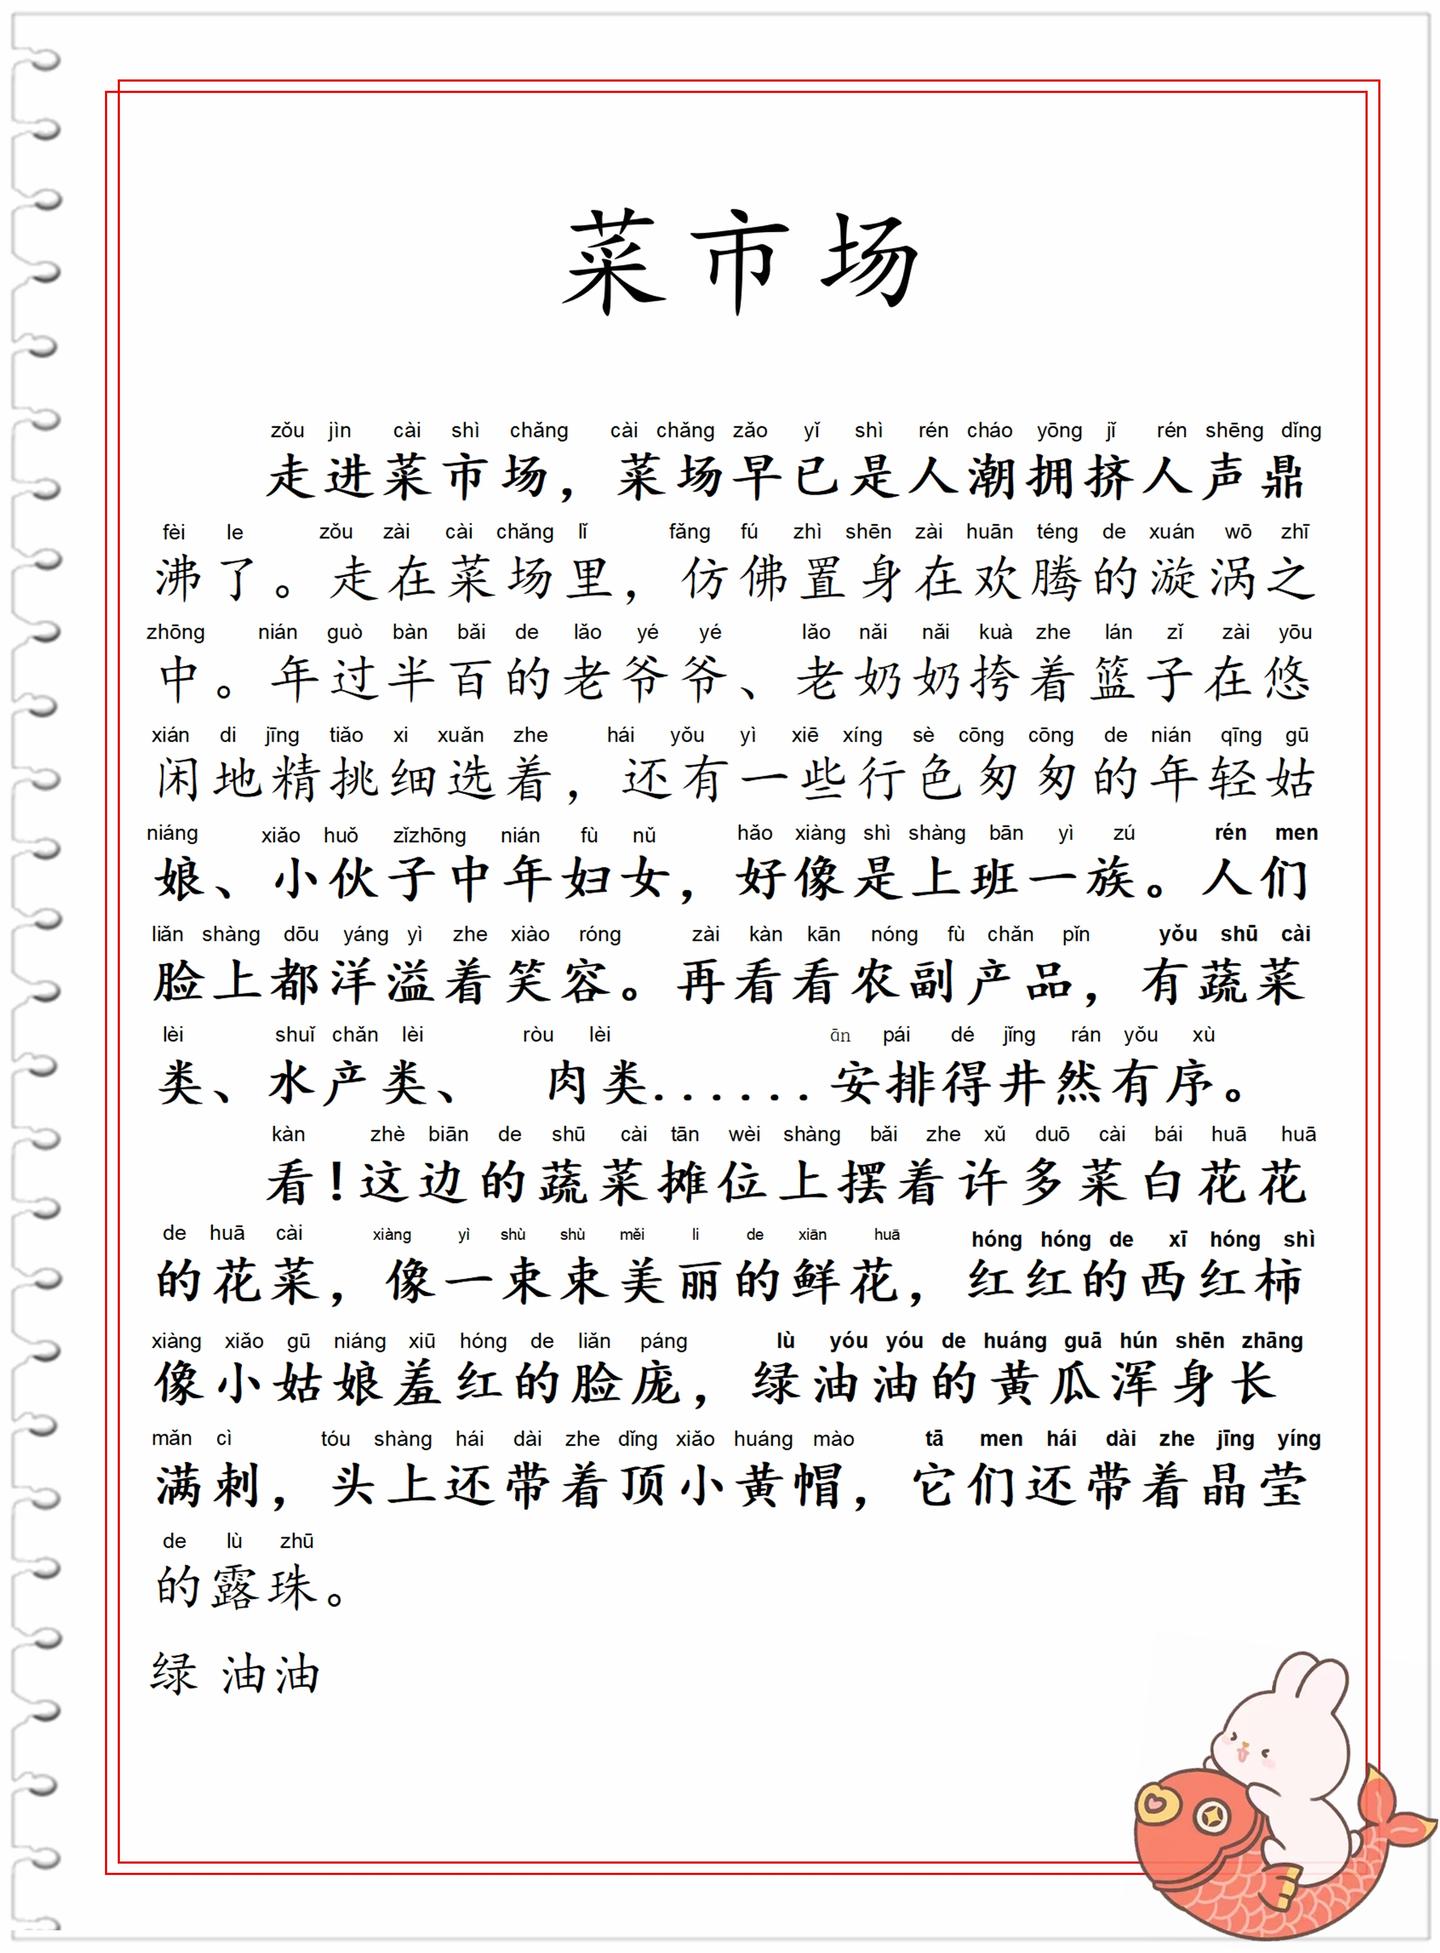 菜市场
zǒu jìn cài shì chǎng cài chǎng zǎo yǐ shì rén cháo yōng jǐ rén shēng dǐng
走进菜市场，菜场早已是人潮拥挤人声鼎
fèi le zǒu zài cài chǎng lǐ fǎng fú zhì shēn zài huān téng de xuán wō zhī
沸了。走在菜场里，仿佛置身在欢腾的漩涡之
zhōng nián guò bàn bǎi de lǎo yé yé lǎo nǎi nǎi kuà zhe lán zǐ zài yōu
中。年过半百的老爷爷、老奶奶挎着篮子在悠
xián di jīng tiǎo xi xuǎn zhe hái yǒu yì xiē xíng sè cōng cōng de nián qīng gū
闲地精挑细选着，还有一些行色匆匆的年轻姑
niáng xiǎo huǒ zǐzhōng nián fù nǔ hǎo xiàng shì shàng bān yì zú rén men
娘、小伙子中年妇女，好像是上班一族。人们
liǎn shàng dōu yáng yì zhe xiào róng zài kàn kān nóng fù chǎn pǐn yǒu shū cài
脸上都洋溢着笑容。再看看农副产品，有蔬菜
lèi shuǐ chǎn lèi ròu lèi ān pái dé jǐng rán yǒu xù
类、水产类、 肉类......安排得井然有序。
kàn zhè biān de shū cài tān wèi shàng bǎi zhe xǔ duō cài bái huā huā
看！这边的蔬菜摊位上摆着许多菜白花花
de huā cài xiàng yì shù shù měi li de xiān huā hóng hóng de xī hóng shì
的花菜，像一束束美丽的鲜花，红红的西红柿
xiàng xiǎo gū niáng xiū hóng de liǎn páng lù yóu yóu de huáng guā hún shēn zhāng
像小姑娘羞红的脸庞，绿油油的黄瓜浑身长
mǎn cì tóu shàng hái dài zhe dǐng xiǎo huáng mào tā men hái dài zhe jīng yíng
满刺，头上还带着顶小黄帽，它们还带着晶莹
de lù zhū
的露珠。
绿 油油